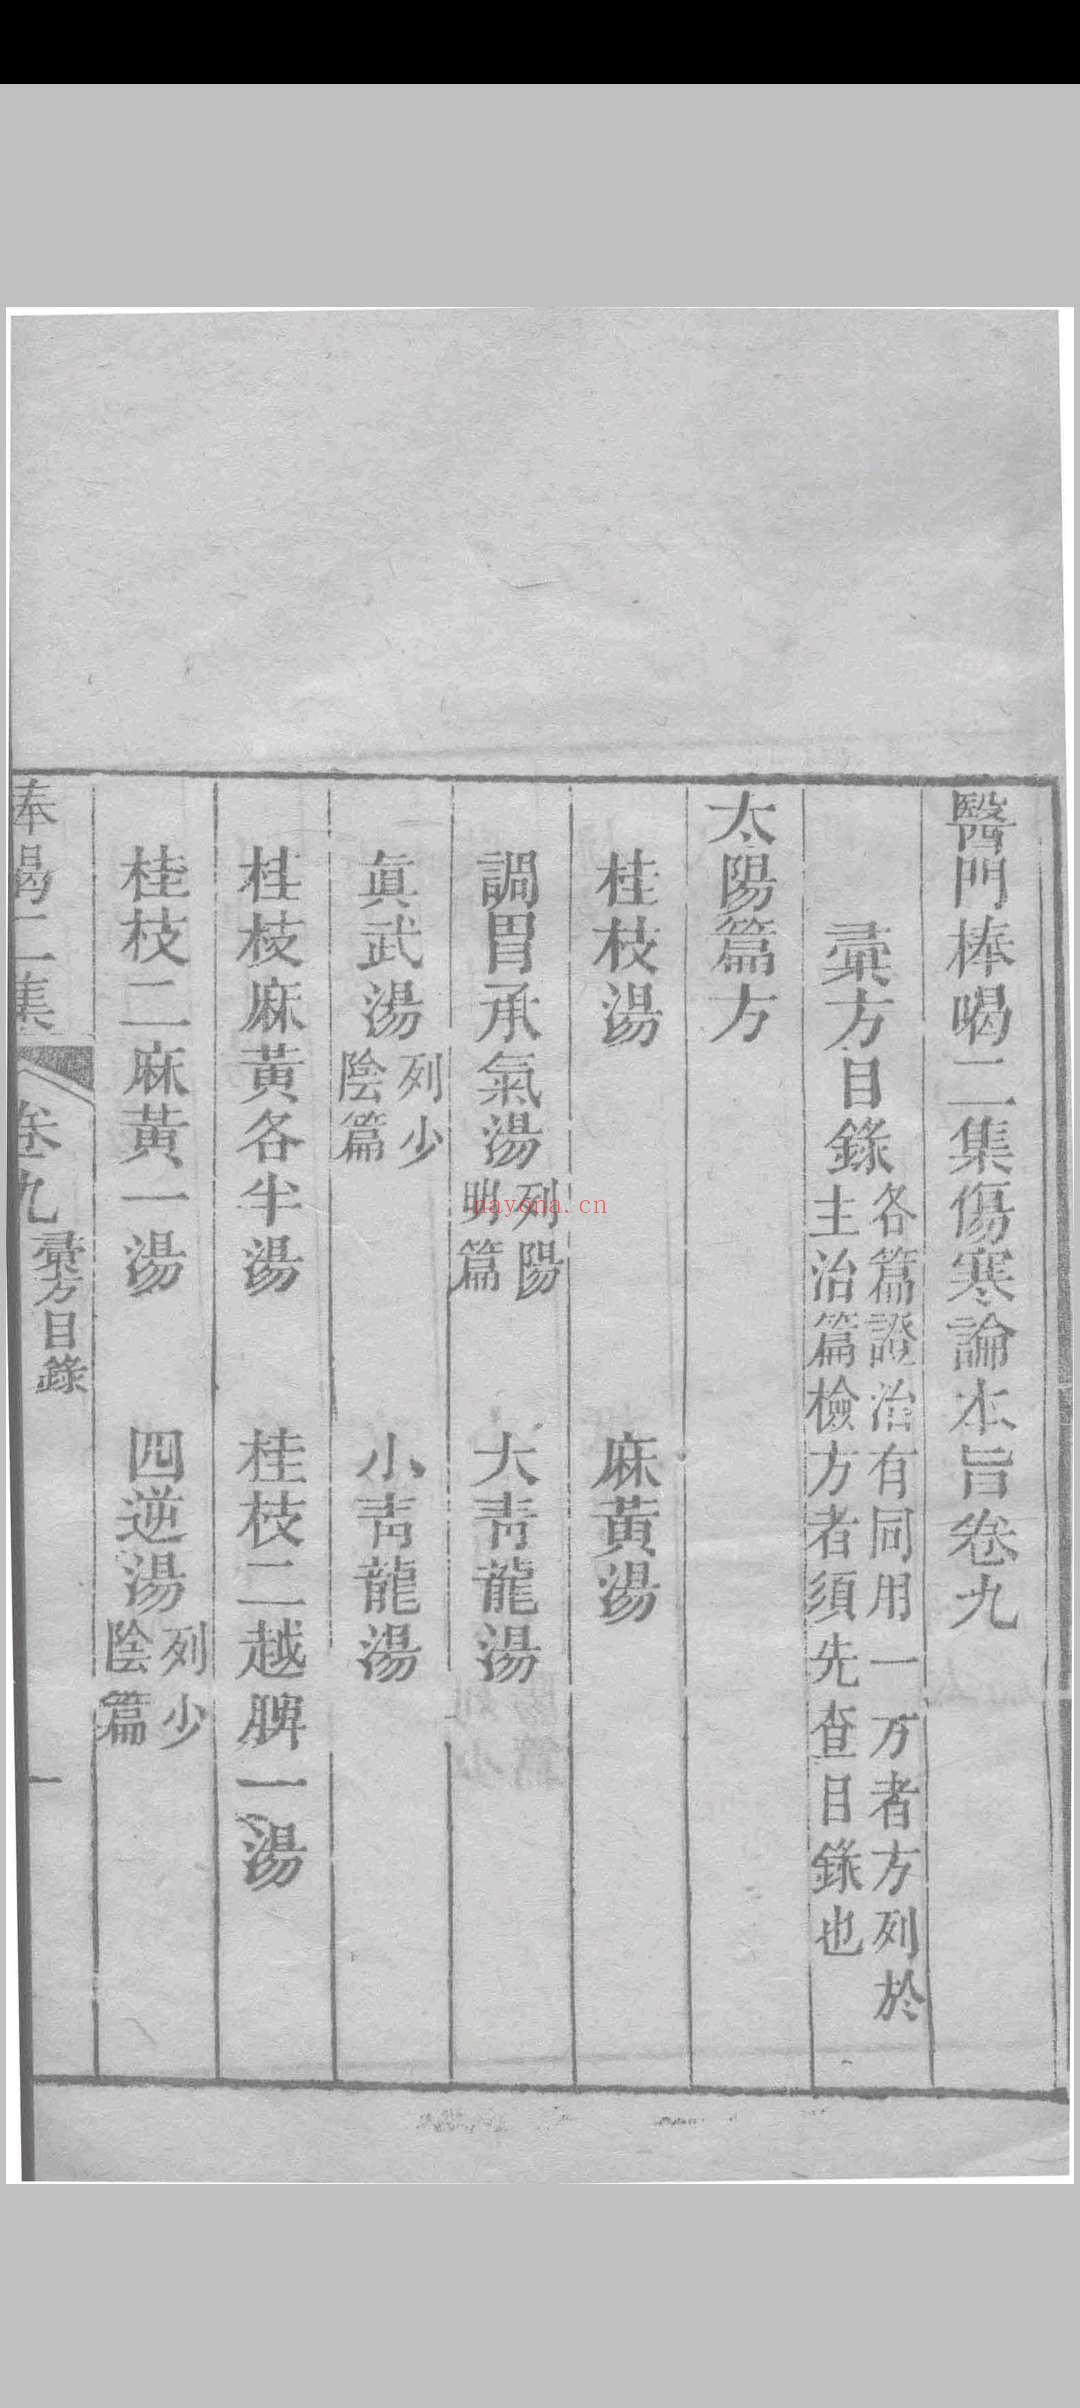 醫門棒喝二集傷寒論本旨卷九
彙方目錄 各篇證治有同用一方者方列於
主治篇檢方者須先查目錄也
太陽篇方
桂枝湯 麻黃湯
調胃承氣湯 列陽明篇 大靑龍湯
眞武湯 列少陰篇 小靑龍湯
桂枝麻黃各半湯 桂枝二越脾一湯
桂枝二麻黃一湯 四逆湯 列少陰篇
棒喝二集 卷九 彙方目錄 一
nayona.cn